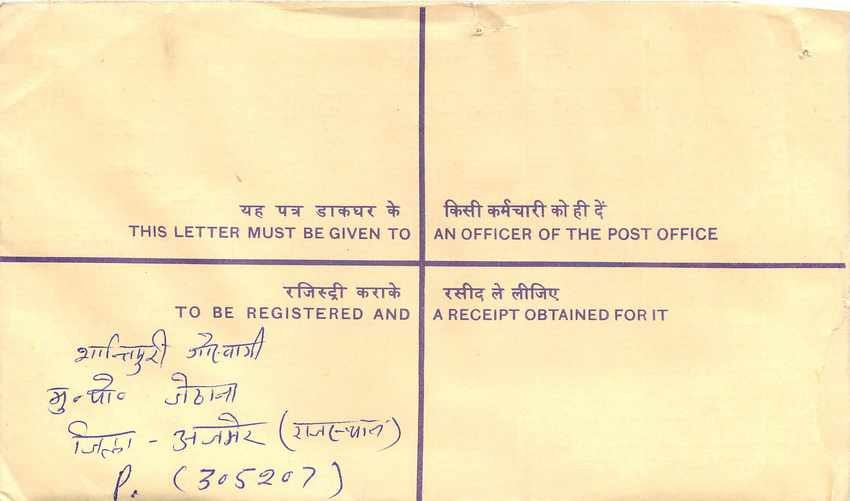 यह पत्र डाकघर के किसी कर्मचारी को ही दें
THIS LETTER MUST BE GIVEN TO AN OFFICER OF THE POST OFFICE
रजिस्ट्री कराके रसीद ले लीजिए
TO BE REGISTERED AND A RECEIPT OBTAINED FOR IT
शान्तिपुरी गौस्वामी
मु॰ पो॰ जेठाना
जिला - अजमेर (राजस्थान)
P. (305207)